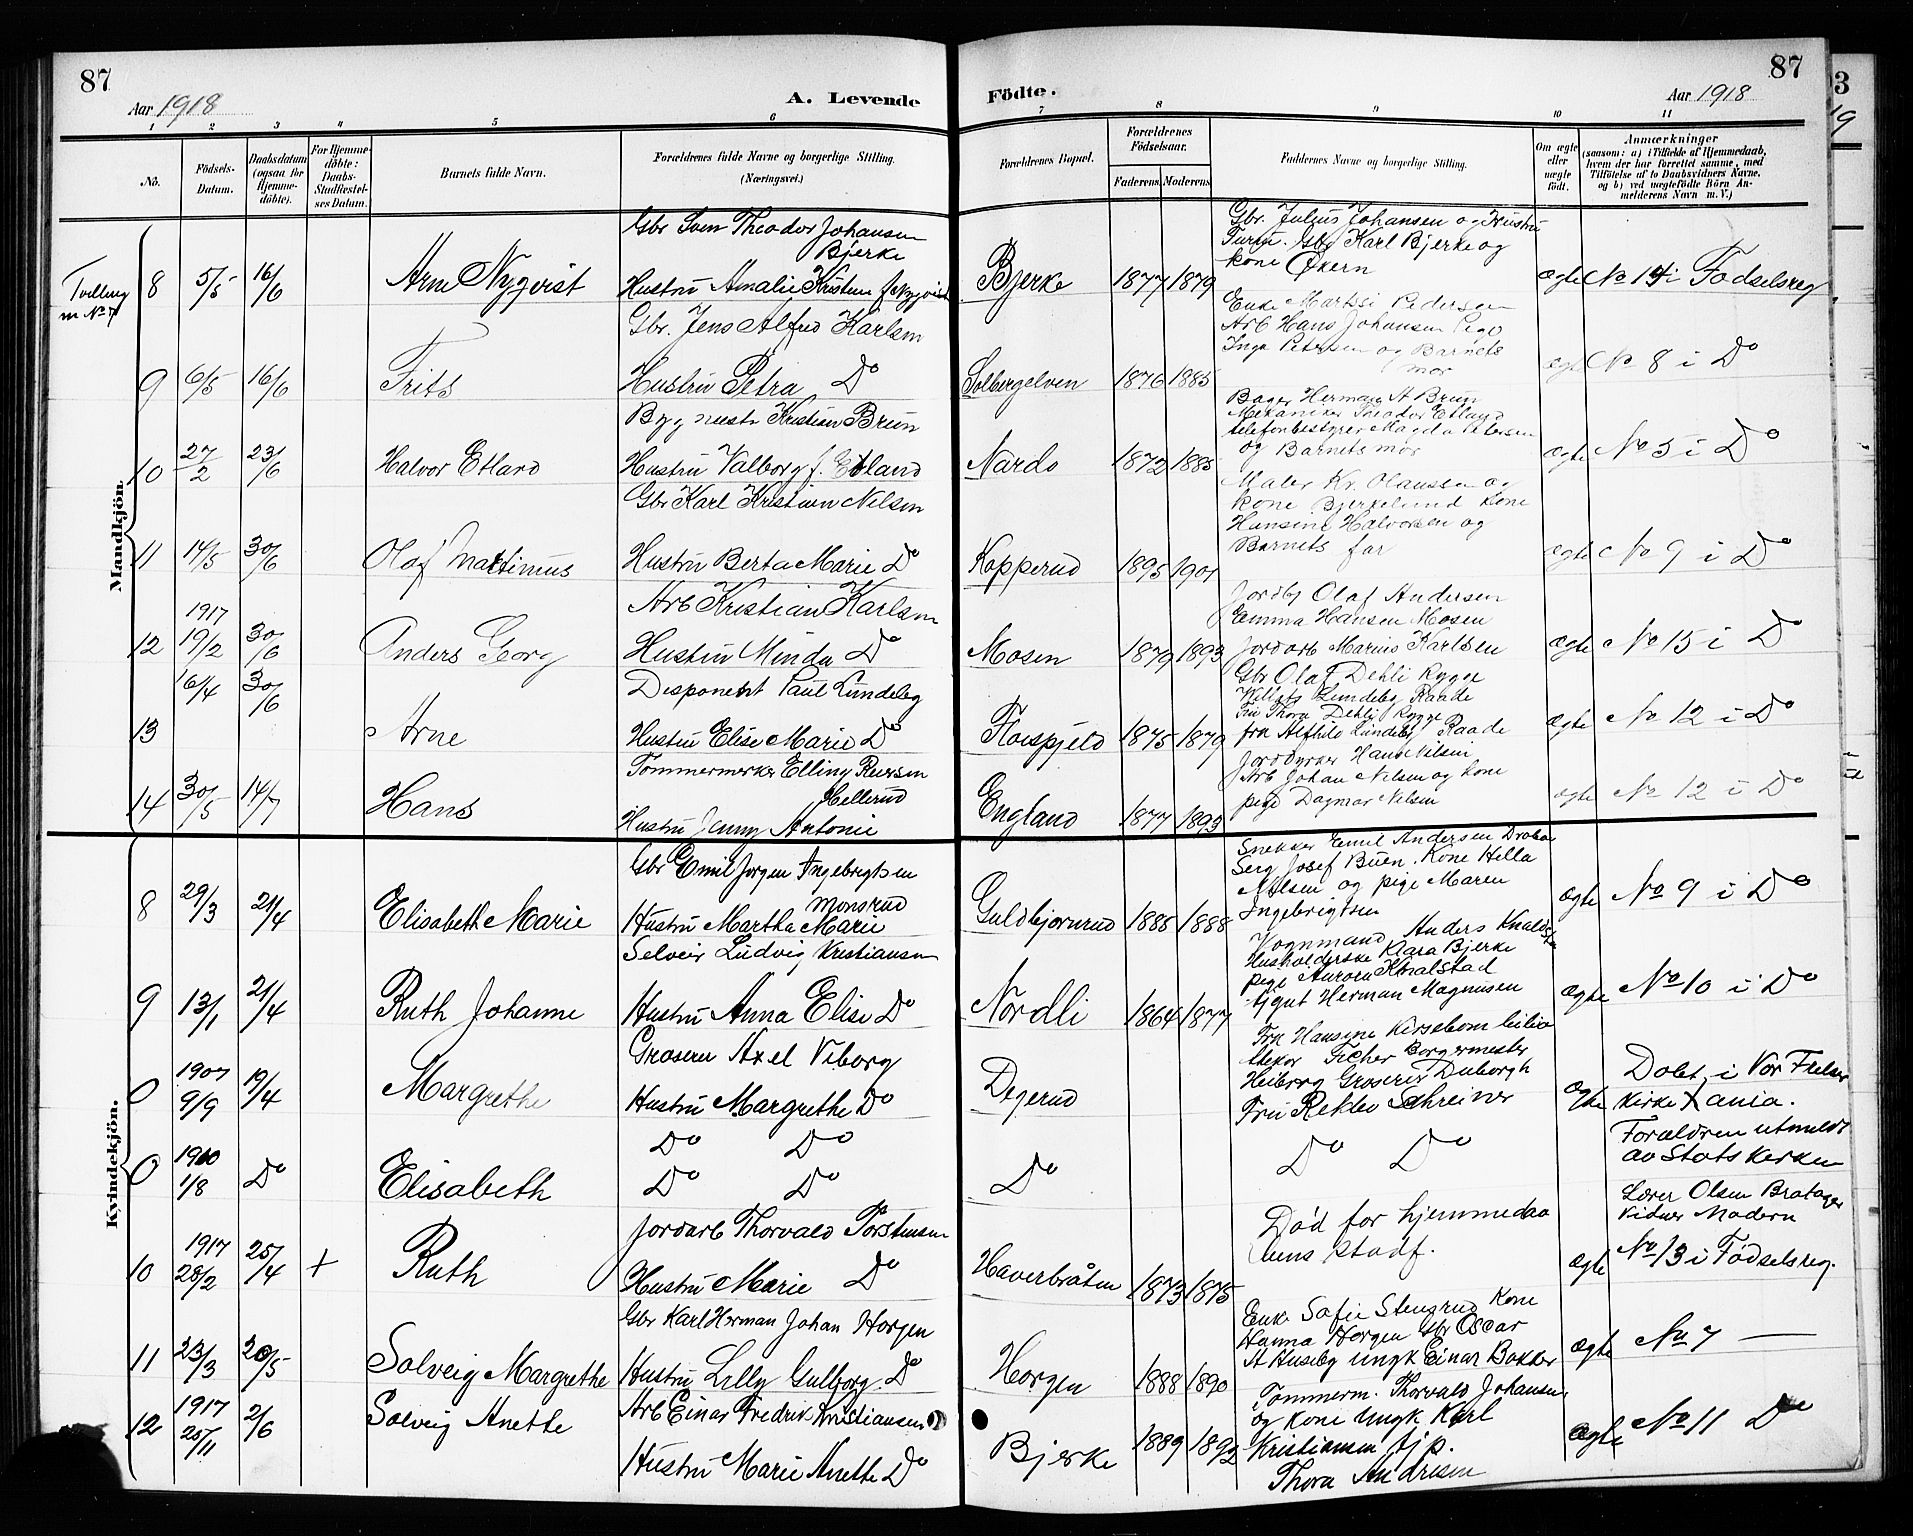 87
Aar 1918
A. Levende
Födte.
Aar 1918
87
1 2 3 4 5 6 7 8 9 10 11
No.
Födsels-Datum.
Daabsdatum (ogsaa for Hjemme-döbte).
For Hjemme-döbte: Daabs-Stadfæstel-ses Datum.
Barnets fulde Navn.
Forældrenes fulde Navne og borgerlige Stilling. (Næringsvei.)
Forældrenes Bopæl.
Forældrenes Födselsaar.
Faderens Moderens
Faddernes Navne og borgerlige Stilling.
Om ægte eller uægte födt.
Anmærkninger
(saasom: a) i Tilfælde af Hjemmedaab, hvem der har forrettet samme, med Tilföielse af to Daabsvidners Navne, og b) ved uægtefödte Börn An-melderens Navn m.V.)
Mandkjön
Tvilling m No 7
8 5/5 16/6 Arne Nyqvist
Gbr Sven Theodor Johansen Bjerke
Hustru Amalie Kristine f. Nyqvist
Bjerke 1877 1879
Gbr. Julius Johansen og Hustru
Gbr Karl Bjerke og
kone Økern
ægte No 14 i Födselsreg
9 6/5 16/6 Frits
Gbr. Jens Alfred Karlsen
Hustru Petra Do
Solbergelven 1876 1885
Enke Martha Pedersen
Arb Hans Johansen Pige
Inga Petersen og Barnets
mor
ægte No 8 i Do
10 27/2 23/6 Halvor Etland
Bygmestr Kristian Brun
Hustru Valborg f. Etland
Nardo 1872 1885
Bager Herman A Brun
Mekaniker Theodor Etland
telefonbestyrer Magda Petersen
og Barnets mor
ægte No 5 i Do
11 14/5 30/6 Olaf Martinius
Gbr Karl Kristian Nilsen
Hustru Berta Marie Do
Kopperud 1895 1901
Maler Kr. Olaussen og
kone Bjerkelund Kone
Hansine Halvorsen og
Barnets far
ægte No 9 i Do
12 1917 19/2 30/6 Anders Georg
Arb Kristian Karlsen
Hustru Minda Do
Mosen 1879 1893
Jordbr Olaf Andersen
Emma Hansen Mosen
Jordarb Marius Karlsen
ægte No 15 i Do
13 16/4 30/6 Arne
Disponent Paul Lundeby
Hustru Elise Marie Do
1875 1879
Gbr Olaf Dehli Rygge
Lundeby Raade
Fru Thora Dehli Rygge
fru Alfhild Lundeby Raade
ægte No 12 i Do
14 30/5 14/7 Hans
Tømmermerker Elling Reersen Hellerud
Hustru Jenny Antonie
England 1877 1893
Jorddyrker Hans Nilsen
Arb Johan Nilsen og kone
pige Dagmar Nilsen
ægte No 12 i Do
Kvindekjön.
8 29/3 21/4 Elisabeth Marie
Gbr Emil Jørgen Ingebrigtsen Monsrud
Hustru Martha Marie
Guldbjørnrud 1885 1888
Snekker Emil Andersen
Serg Josef Buen. Kone Hella
Nilsen og pige Maren
Ingebrigtsen
ægte No 9 i Do
9 13/1 21/4 Ruth Johanne
Selveir Ludvig Kristiansen
Hustru Anna Elise Do
Nordli 1864 1877
Vognmand Anders Knalstad
Husholderske Klara Bjerke
pige Aurora Knalstad
Herman Magnusen
ægte No 10 i Do
0 1907 9/9 19/4 Margrethe
Groserer Axel Viborg
Hustru Margrethe Do
Degerud
Fru Hansine Kirsebom
Ficher Borgermester
Heiberg Groserer Duborgh
Fru Rekdev Schreiner
ægte
Døbt i Vor Frelser
Kirke Xania.
0 1910 1/8 Do Elisabeth
Do Do
Do Do
Do
Do Do
Forældren utmeldt
av Statskirken
10 1917 28/2 25/4 + Ruth
Jordarb Thorvald Torstensen
Hustru Marie Do
Haverbråten 1873 1875
Død før hjemmedaa
bens stadf.
ægte
Lærer Olsen Bratager
Vidner Modern
No 13 i Födselsreg.
11 23/3 20/5 Solveig Margrethe
Gbr Karl Herman Johan Horgen
Hustru Lilly Gulborg Do
Horgen 1888 1890
Enke Sofie Stensrud Kone
Hanna Horgen Gbr Oscar
A Huseby Ungk Einar Bakker
ægte No 7 —
12 1917 25/11 2/6 Solveig Anette
Arb Einar Fredrik Kristiansen
Hustru Marie Anette Do
Bjerke 1889 1892
Tømmerm. Thorvald Johansen
og kone Ungk Karl
Kristiansen
Thora Andresen
ægte No 11 Do